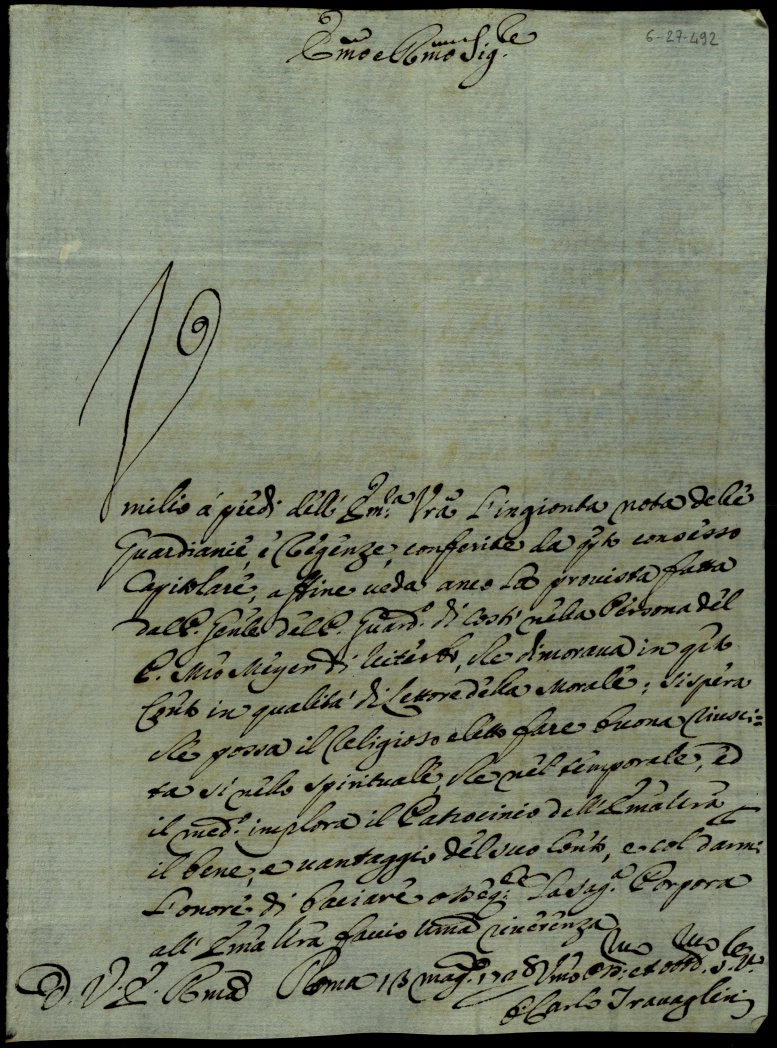 6-27-492
Emo e Rmo Sig.re
Umilio à piedi dell' Em.a Vrã l'ingionta nota delle
Guardianie, e Regenze conferite da qto consesso
Capitolare, affine veda anco la provista fatta
dal P. Gẽnle del P. Guard.o di costì nella Persona del
P. Mro di Viterbo, che dimorava in qto
Cõnto in qualità di Lettore della Morale; si spera
che possa il Religioso eletto fare buona riusci=
ta sì nello spirituale, che nel temporale, ed
il med.o implora il Patrocinio dell' Ema Vrã
il bene, e vantaggio del suo Cõnto, e col darmi
l'onore di baciare osseq.te la Sag.a Porpora
all' Ema Vrã faccio umã riverenza
D. V. E. Rmã Roma 13 mag.o Umo
F. Carlo Travaglini